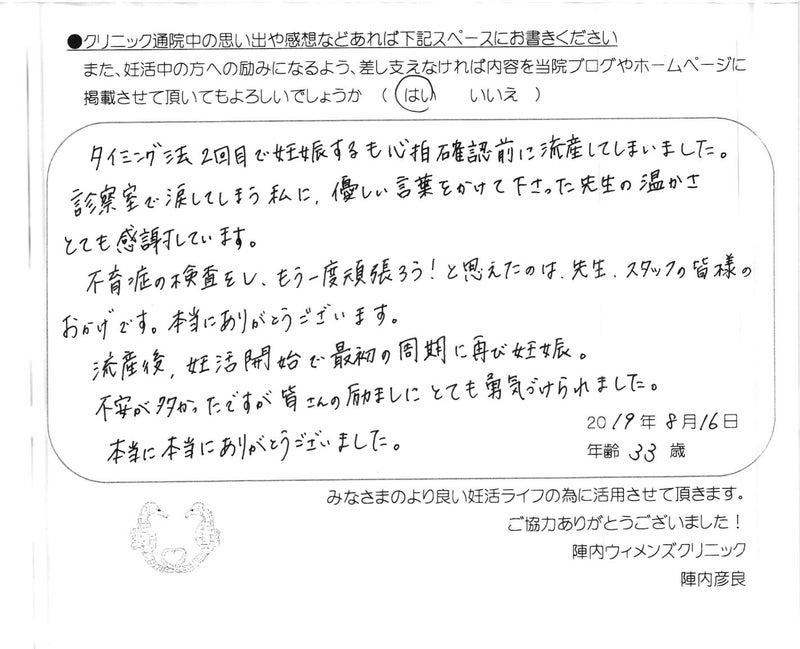 ●クリニック通院中の思い出や感想などあれば下記スペースにお書きください
また、妊活中の方への励みになるよう、差し支えなければ内容を当院ブログやホームページに
掲載させて頂いてもよろしいでしょうか （ はい いいえ ）
タイミング法2回目で妊娠するも心拍確認前に流産してしまいました。
診察室で涙してしまう私に、優しい言葉をかけて下さった先生の温かさ
とても感謝しています。
不育症の検査をし、もう一度頑張ろう！と思えたのは、先生、スタッフの皆様の
おかげです。本当にありがとうございます。
流産後、妊活開始で最初の周期に再び妊娠。
不安が多かったですが皆さんの励ましにとても勇気づけられました。
本当に本当にありがとうございました。
2019年8月16日
年齢 33 歳
みなさまのより良い妊活ライフの為に活用させて頂きます。
ご協力ありがとうございました！
陣内ウィメンズクリニック
陣内彦良